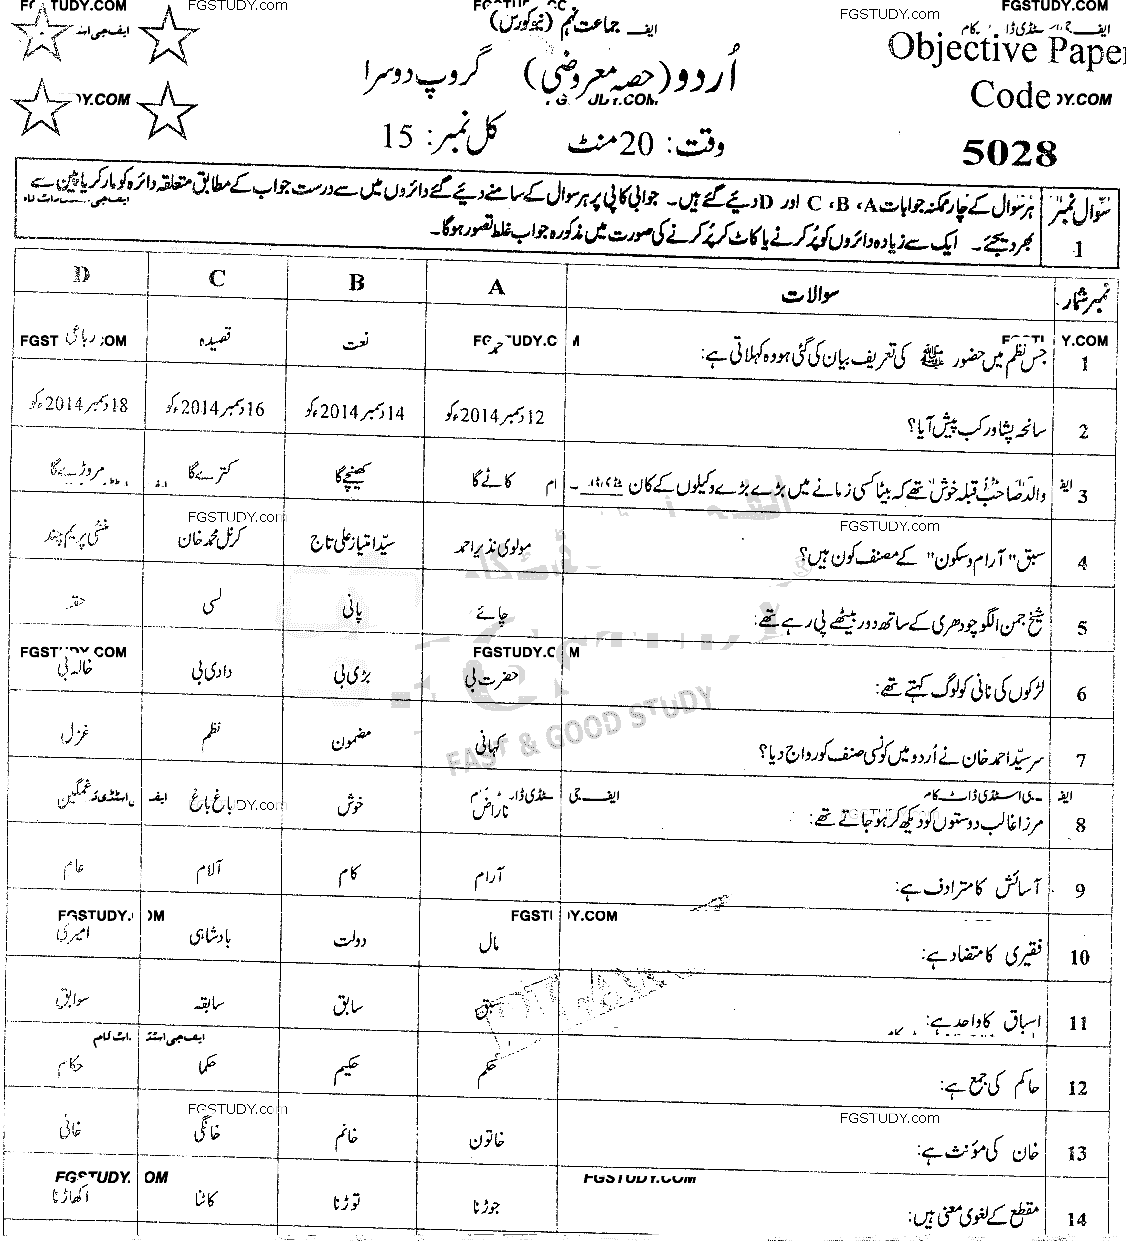 FGSTUDY.COM
FGSTUDY.COM
FGSTUDY.com
FGSTUDY.com
جماعت نہم (نیو کورس)
اُردو (حصہ معروضی) گروپ دوسرا
وقت: 20 منٹ کل نمبر: 15
Objective Paper
Code
5028
سوال نمبر 1
ہر سوال کے چار ممکنہ جوابات A ، B ، C اور D دیئے گئے ہیں۔ جوابی کاپی پر ہر سوال کے سامنے دیئے گئے دائروں میں سے درست جواب کے مطابق متعلقہ دائرہ کو مارکر یا پین سے
بھر دیجئے۔ ایک سے زیادہ دائروں کو پُر کرنے یا کاٹ کر پُر کرنے کی صورت میں مذکورہ جواب غلط تصور ہوگا۔
نمبر شمار سوالات A B C D
1 جس نظم میں حضور ﷺ کی تعریف بیان کی گئی ہو وہ کہلاتی ہے: حمد نعت قصیدہ رباعی
2 سانحہ پشاور کب پیش آیا؟ 12 دسمبر 2014ء کو 14 دسمبر 2014ء کو 16 دسمبر 2014ء کو 18 دسمبر 2014ء کو
3 والد صاحب قبلہ خوش تھے کہ بیٹا کسی زمانے میں بڑے بڑے وکیلوں کے کان ۔ کاٹے گا کھینچے گا کترے گا مروڑے گا
4 سبق "آرام و سکون" کے مصنف کون ہیں؟ مولوی نذیر احمد سیّد امتیاز علی تاج کرنل محمد خان منشی پریم چند
5 شیخ جمن الگو چودھری کے ساتھ دور بیٹھے پی رہے تھے: چائے پانی لسی حقہ
6 لڑکوں کی نانی کو لوگ کہتے تھے: حضرت بی بڑی بی دادی بی خالہ بی
7 سر سیّد احمد خان نے اُردو میں کونسی صنف کو رواج دیا؟ کہانی مضمون نظم غزل
8 مرزا غالب دوستوں کو دیکھ کر ہو جاتے تھے: ناراض خوش باغ باغ غمگین
9 آسائش کا مترادف ہے: آرام کام آلام عام
10 فقیری کا متضاد ہے: مال دولت بادشاہی امیری
11 اسباق کا واحد ہے: سبق سابق سابقہ سوابق
12 حاکم کی جمع ہے: حکم حکیم حکما حکام
13 خان کی مؤنث ہے: خاتون خانم خانگی خانی
14 مقطع کے لغوی معنی ہیں: جوڑنا توڑنا کاٹنا اکھاڑنا
FAST & GOOD STUDY